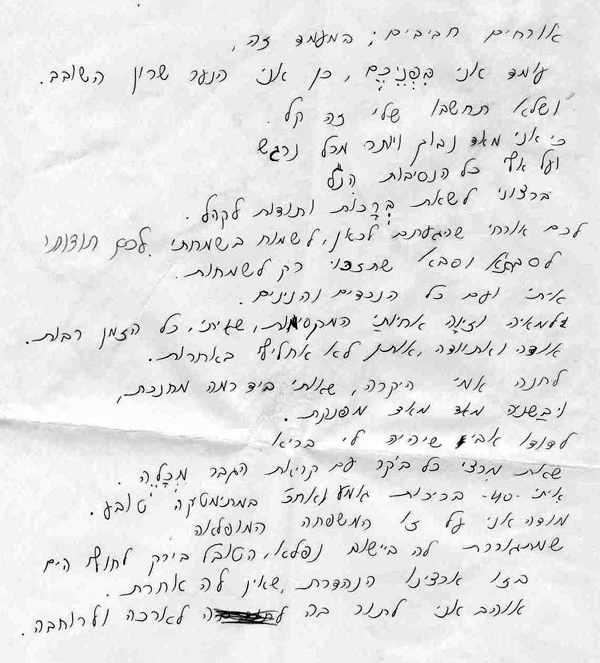 אורחים חביבים; במעמד זה,
עומד אני בִּפְנֵיכֶם, כן אני הנער שרון השובב.
ושלא תחשבו שלי זה קל.
כי אני מאד נבוך ויותר מכל נרגש
ועל אף כל הנסיבות הנ"ל
ברצוני לשאת בְּרָכוֹת ותודות לקהל.
לכם אורחי שהגעתם לכאן, לשמוח בשמחתי. לכם תודותי
לסבתא וסבא שתזכו רק לשמחות.
איתי ועם כל הנכדים והנינים.
אחיותי המקסימות, שאיתי, כל הזמן רבות.
אודה ואתוודה, אותן לא אחליף באחרות.
לחנה אמי היקרה, שאותי ביד רמה מחנכת,
מאד מאד מפנקת.
לדודו אבי שיהיה לי בריא
שאת מרצי כל בקר עם קריאת הגבר מְכַלֶּה.
איתי -40- בריכות במתימטיקה טובע.
מודה אני על זו המשפחה המופלאה
שמתגוררת לה ביישוב נפלא, הטובל בירק לחוף הים
בזו ארצינו הנהדרת, שאין לה אחרת.
אוהב אני לתור בה לאורכה ולרוחבה.